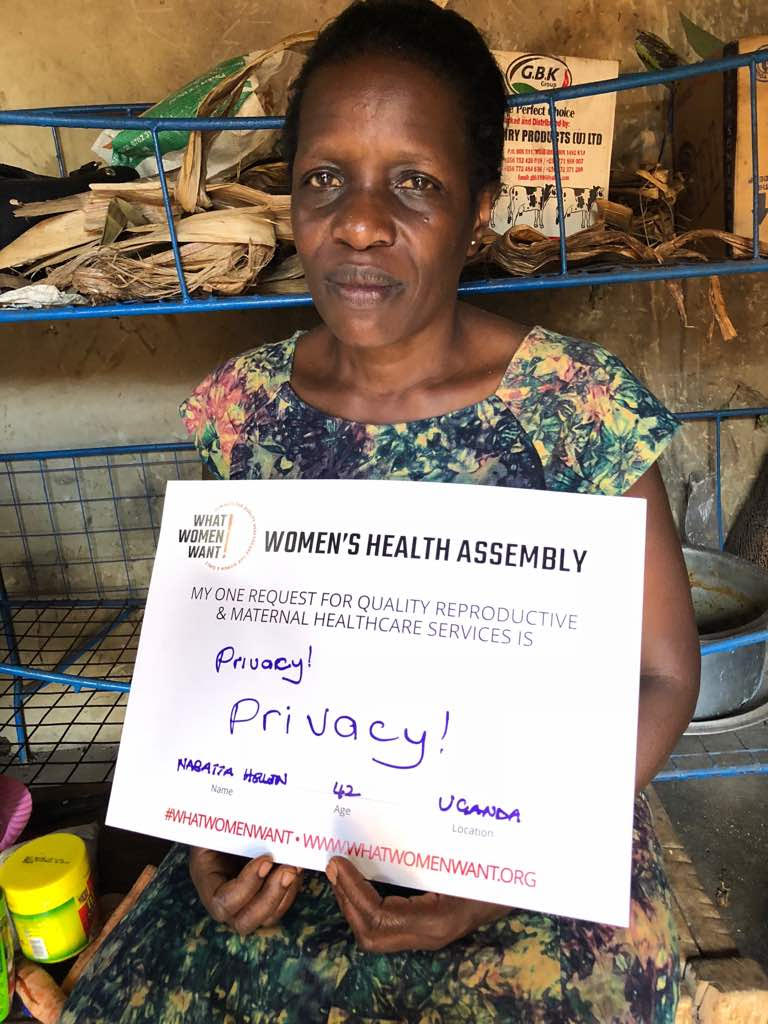 G.B.K
Group
Perfect Choice
and Distributed by:
PRODUCTS (U) LTD
WHAT
WOMEN
WANT!
WOMEN'S HEALTH ASSEMBLY
MY ONE REQUEST FOR QUALITY REPRODUCTIVE
& MATERNAL HEALTHCARE SERVICES IS
Privacy!
Privacy!
42
UGANDA
Name
Age
Location
#WHATWOMENWANT • WWW.WHATWOMENWANT.ORG